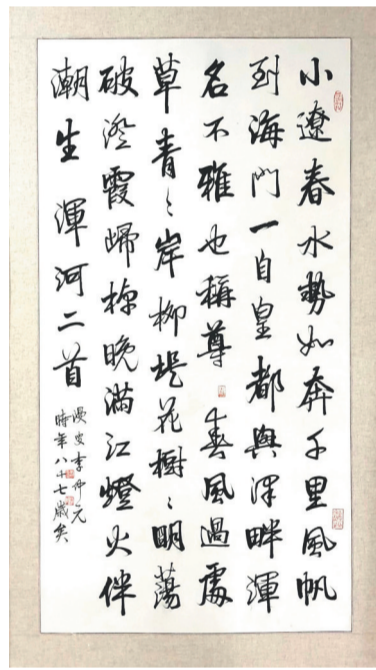 小遼春水勢如奔千里風帆
到海門一自皇都與澤畔渾
名不雅也稱尊 春風過處
草青〻岸柳堤花樹〻明蕩
破澄霞歸棹晚滿江燈火伴
潮生 渾河二首
漫叟李仲元
時年八十七歲矣